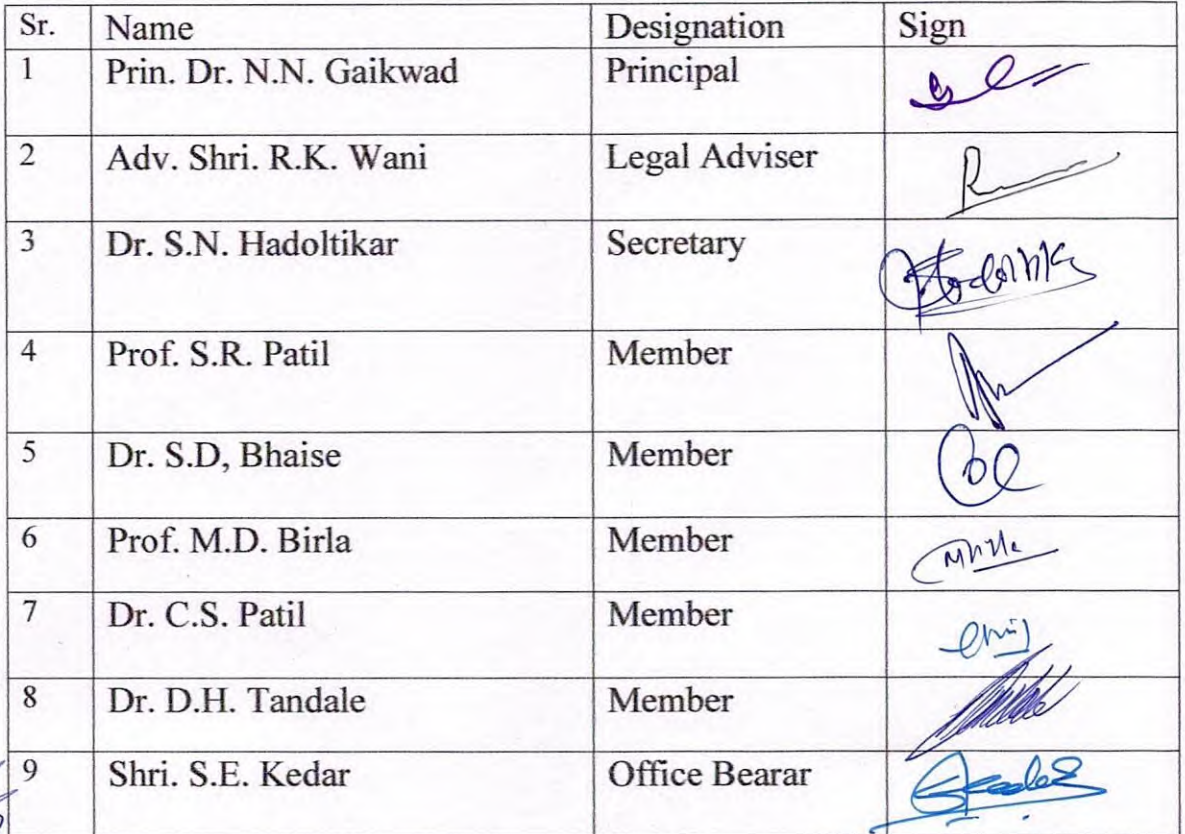 Sr. Name Designation Sign
1 Prin. Dr. N.N. Gaikwad Principal
2 Adv. Shri. R.K. Wani Legal Adviser
3 Dr. S.N. Hadoltikar Secretary
4 Prof. S.R. Patil Member
5 Dr. S.D, Bhaise Member
6 Prof. M.D. Birla Member
7 Dr. C.S. Patil Member
8 Dr. D.H. Tandale Member
9 Shri. S.E. Kedar Office Bearar